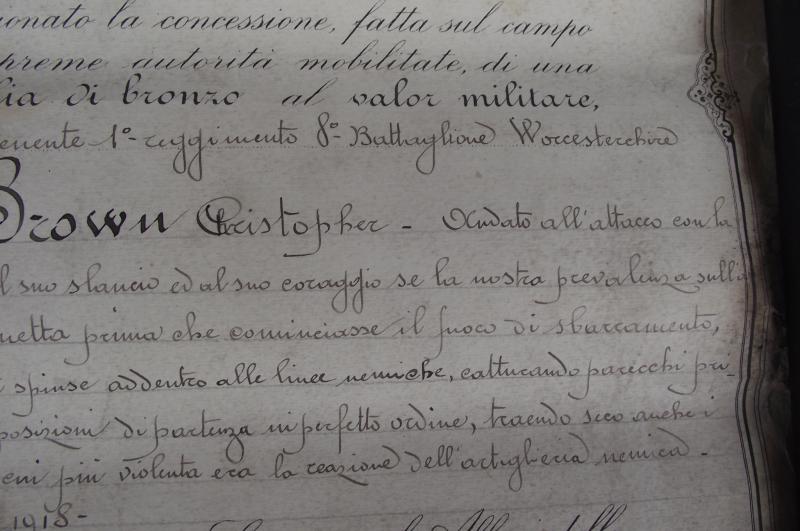 ionato la concessione, fatta sul campo
preme autorità mobilitate, di una
lia di bronzo al valor militare,
enente 1°- reggimento 8°- Battaglione Worcesterchire
Brown Christopher - Andato all'attacco con la
l suo slancio ed al suo coraggio se la nostra prevalenza sull'a
netta prima che cominciasse il fuoco di sbarramento,
i spinse addentro alle linee nemiche, catturando parecchi pri-
posizioni di partenza in perfetto ordine, traendo seco anche i
eni più violenta era la reazione dell'artiglieria nemica -
1918-